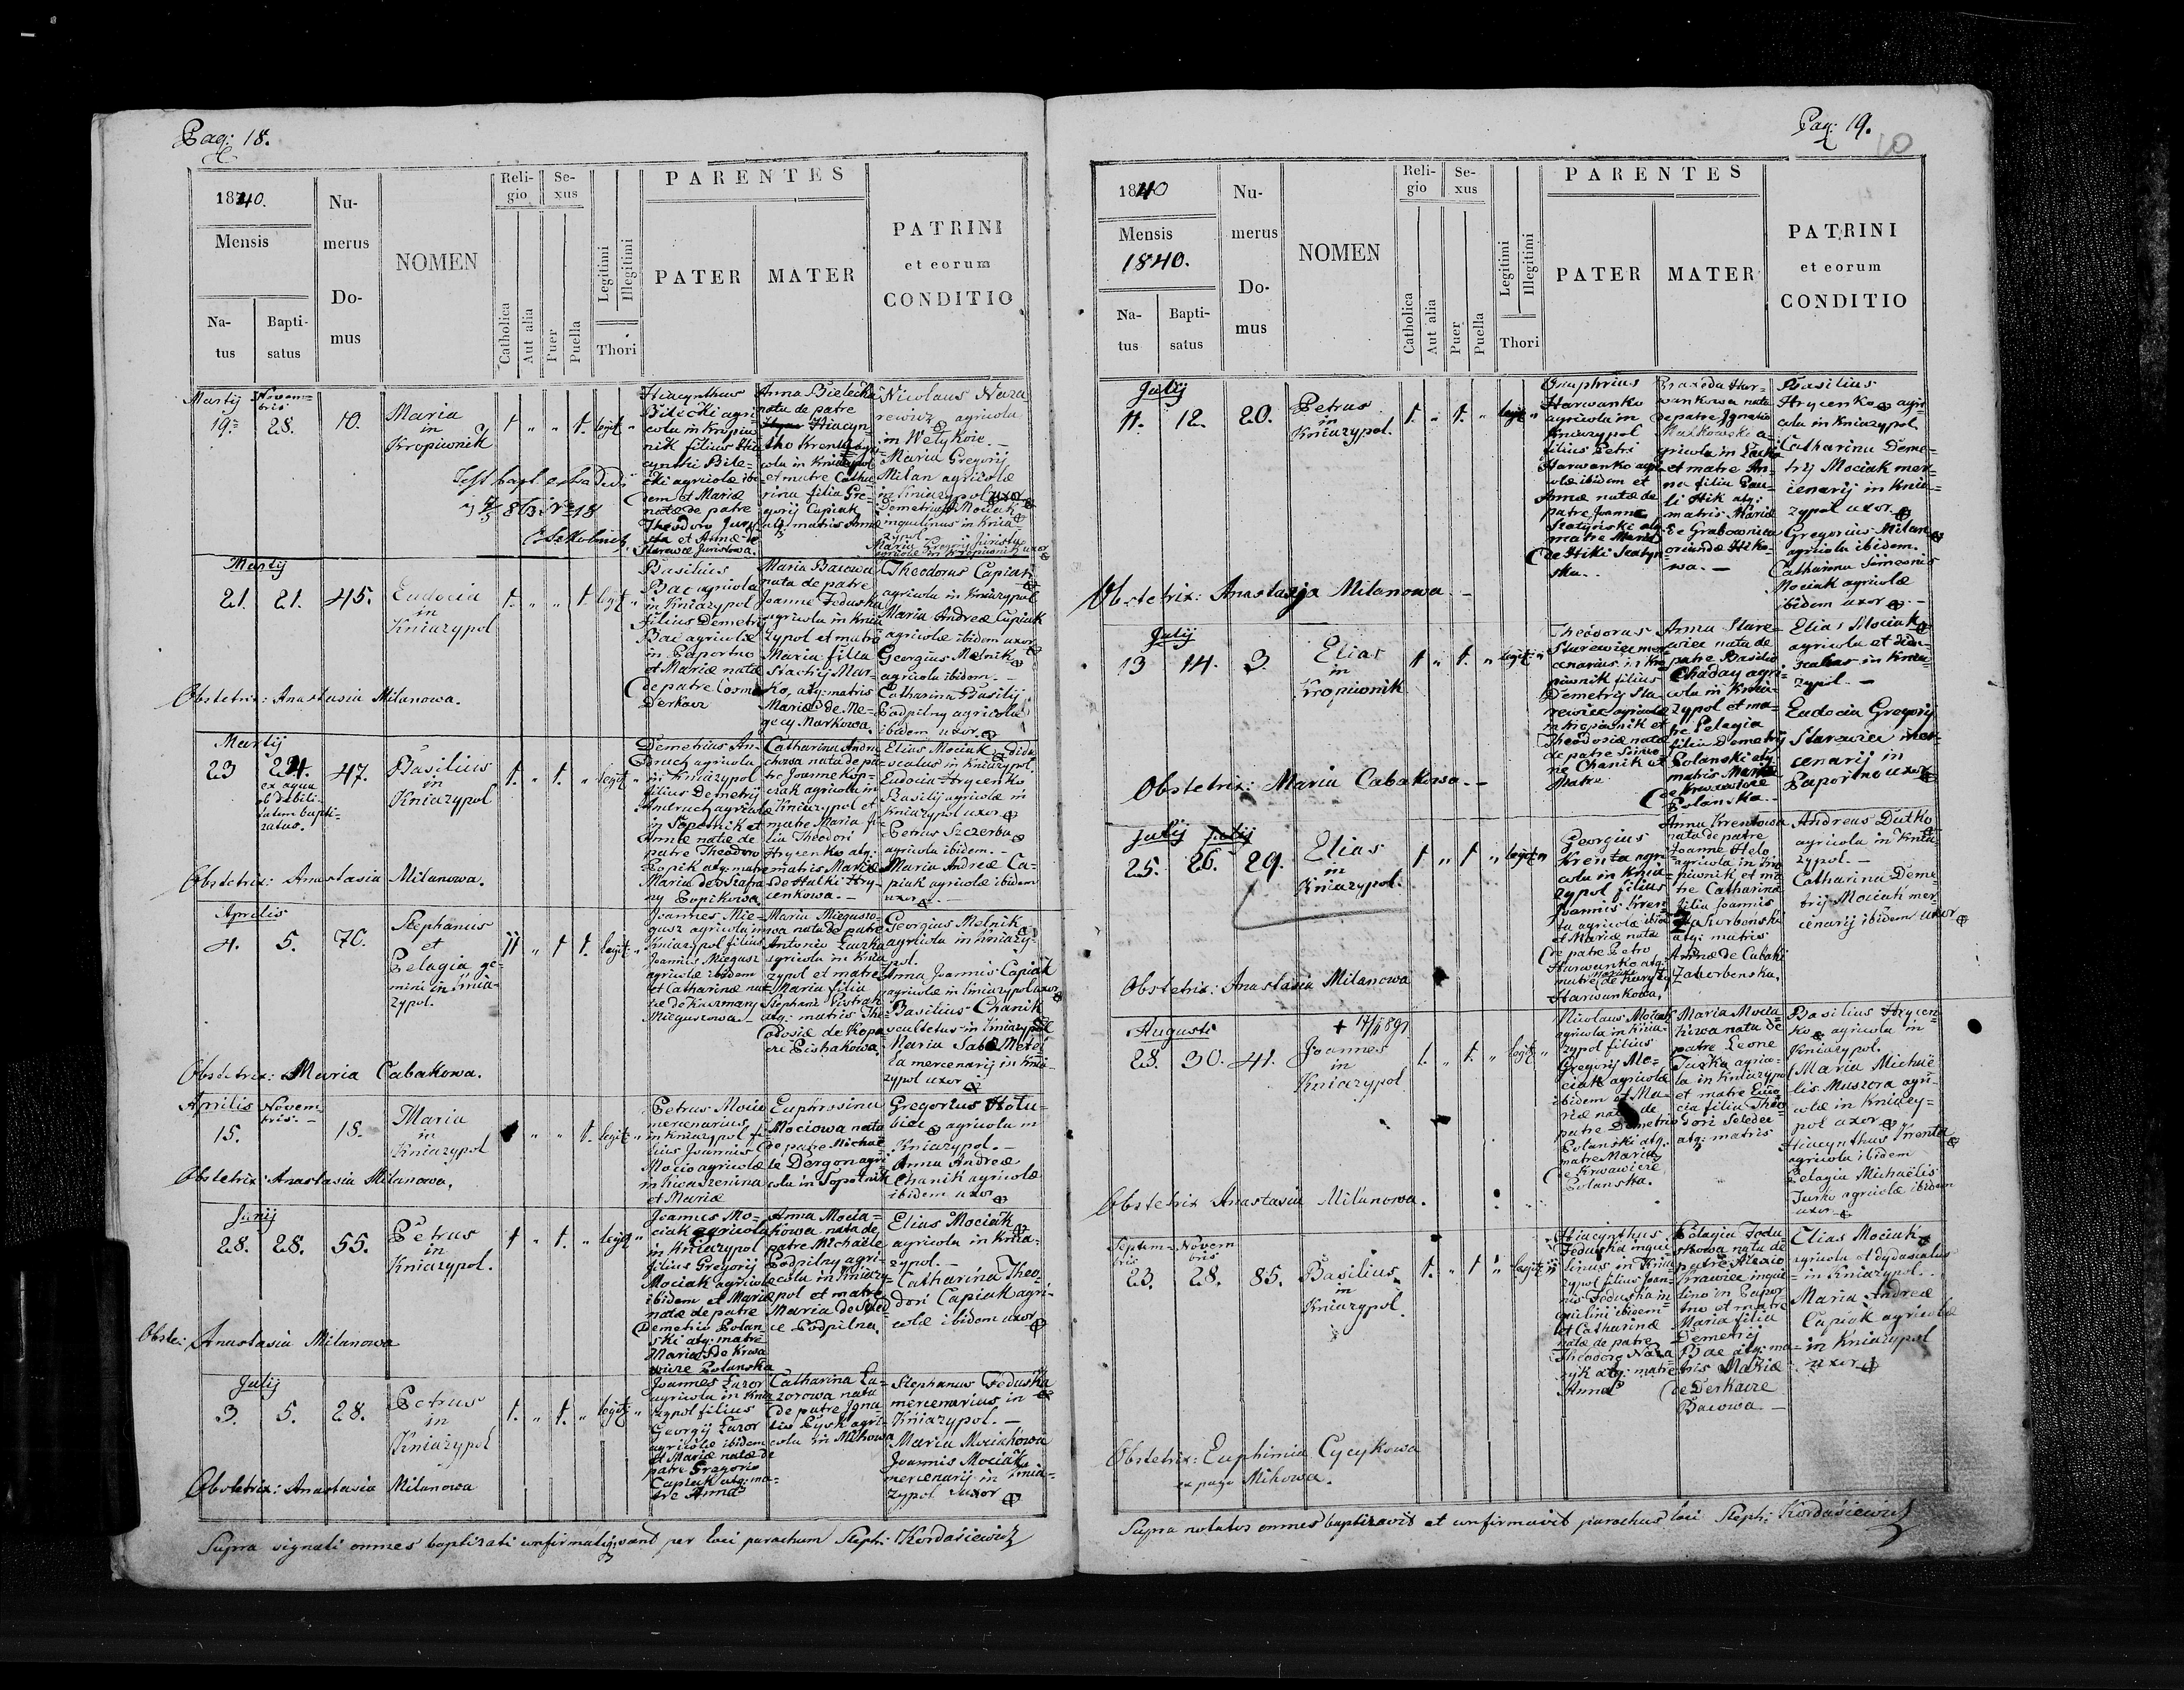 Pag: 18.
1840.
Mensis
Na-
tus
Bapti-
satus
Nu-
merus
Do-
mus
NOMEN
Reli-
gio
Catholica
Aut alia
Se-
xus
Puer
Puella
Legitimi
Illegitimi
Thori
PARENTES
PATER
MATER
PATRINI
et eorum
CONDITIO
Martij Novem-
bris
19. 28. 10.
Maria
in
Kropiwnik
legit
Hiacynthus
Bilecki agri-
cola in Kropiw-
nik filius Hia
cynthi Bile-
cki agricolæ ibi-
dem et Mariæ
natæ de patre
Theodoro
et Annæ de
Anna Bielecka
nata de patre
Hiacyn-
tho Krenta agri-
cola in Kniazypol
et matre Catha
rina filia Gre-
gorij Capiak
atq: matris Annæ
Nicolaus Naza
rewicz agricola
in Welykoie. -
Maria Gregorij
Milan agricolæ
in Kniazypol uxor
Demetrius Mociak
inquilinus in Knia-
zypol
Martij
21. 21. 45.
Eudocia
in
Kniazypol
legit
Basilius
Bac agricola
in Kniazypol
Filius Demetrij
Bac agricolæ
in Paportno
et Mariæ natæ
de patre Cosma
Derkacz
Maria Bacowa
nata de patre
Joanne Feduska
agricola in Knia
zypol et matre
Maria filia
Stachij Mar-
ko, atq: matris
Mariæ de Me-
gecy Markowa.
Theodorus Capiak
agricola in Kniazypol
Maria Andreæ Capiak
agricolæ ibidem uxor
Georgius Melnik
agricola ibidem. -
Catharina Basilij
Podpilny agricolæ
ibidem uxor
Obstetrix: Anastasia Milanowa.
Martij
23 24. 47.
ex aqua
ob debili-
tatem bapti-
zatus.
Basilius
in
Kniazypol
legit
Demetrius An-
druch agricola
in Kniazypol
filius Demetrij
Andruch agricolæ
in Sopotnik et
Annæ natæ de
patre Theodoro
Popik atq: matre
Maria de Szafra
ny Popikowa.
Catharina Andru
chowa nata de pa-
tre Joanne Kop-
ciak agricola in
Kniazypol et
matre Maria fi-
lia Theodori
Hrycenko atq:
matris Mariæ
de Hulki Hry-
cenkowa. -
Elias Mociak dida
scalus in Kniazypol.
Eudocia Hrycenko
Basilij agricolæ in
Kniazypol uxor
Petrus Szczerba
agricola ibidem. -
Maria Andreæ Ca-
piak agricolæ ibidem
uxor
Obstetrix: Anastasia Milanowa.
Aprilis
4. 5. 70.
Stephanus
et
Pelagia ge-
mini in Knia-
zypol.
legit
Joannes Mie-
gusz agricola in
Kniazypol filius
Joannis Miegusz
agricolæ ibidem
et Catharinæ na-
tæ de Kuczmary
Mieguszowa -
Maria Mieguszo-
wa nata de patre
Antonio Luczka
agricola in Knia
zypol et matre
Maria filia
Stephani Pistrak
atq: matris The-
odosiæ de Kopa
cze Pistrakowa.
Georgius Melnik
agricola in Kniazy-
pol.
Anna Joannis Capiak
agricolæ in Kniazypol uxor
Basilius Chanik
scultetus in Kniazypol
Maria Sabæ Mete-
la mercenarij in Knia-
zypol uxor
Obstetrix: Maria Cabakowa.
Aprilis Novem-
bris. -
15. 18.
Maria
in
Kniazypol
legit
Petrus Mocio
mercenarius
in Kniazypol fi-
lius Joannis
Mocio agricolæ
in Kwaszenina
et Mariæ
Euphrosina
Mociowa nata
de patre Michae
le Dorgon agri-
cola in Sopotnik
Gregorius Hołu-
biec agricola in
Kniazypol. -
Anna Andreæ
Chanik agricolæ
ibidem uxor
Obstetrix: Anastasia Milanowa.
Junij
28. 28. 55.
Petrus
in
Kniazypol.
legit
Joannes Mo-
ciak agricola
in Kniazypol
filius Gregorij
Mociak agricolæ
ibidem et Mariæ
natæ de patre
Demetrio Polan
ski atq: matre
Maria De Krwa
wicze Polanska
Anna Mocia-
kowa nata de
patre Michaele
Podpilny agri-
cola in Kniazy-
pol et matre
Maria de Seled
ce Podpilna.
Elias Mociak
agricola in Knia-
zypol. -
Catharina Theo-
dori Capiak agri-
colæ ibidem uxor
Obste: Anastasia Milanowa
Julij
3. 5. 28.
Petrus
in
Kniazypol
legit
Joannes Lazor
agricola in Knia
zypol filius
Georgij Lazor
agricolæ ibidem
et Mariæ natæ de
patre Gregorio
Capiak atq: ma-
tre Anna
Catharina La-
zorowa nata
de patre Igna-
tio Pysk agri-
cola in Mihowa
Stephanus Feduska
mercenarius in
Kniazypol. -
Maria Mociakowa
Joannis Mociak
mercenarij in Knia-
zypol uxor
Obstetrix: Anastasia Milanowa
Supra signati omnes baptizati confirmatiq; sunt per loci parochum Steph: Kordasiewicz
Pag: 19.
10
1840
Mensis
1840.
Na-
tus
Bapti-
satus
Nu-
merus
Do-
mus
NOMEN
Reli-
gio
Catholica
Aut alia
Se-
xus
Puer
Puella
Legitimi
Illegitimi
Thori
PARENTES
PATER
MATER
PATRINI
et eorum
CONDITIO
Julij
11. 12. 20.
Petrus
in
Kniazypol.
legit
Onuphrius
Harwanko
agricola in
Kniazypol
filius Petri
Harwanko agri-
colæ ibidem et
Annæ natæ de
patre Joanne
atq:
matre Maria
de Hiki
Praxeda Har-
wankowa nata
de patre Ignatio
Malkowski a-
gricola in
et matre An-
na filia Pau-
li Hik atq:
matris Mariæ
de Grabownica
oriundæ Hiko-
wa. -
Basilius
Hrycenko agri-
cola in Kniazypol
Catharina Deme-
trij Mociak mer-
cenarij in Knia-
zypol uxor
Gregorius Milan
agricola ibidem.
Catharina Simeonis
Mociak agricolæ
ibidem uxor -
Obstetrix: Anastazja Milanowa -
Julij
13 14. 3.
Elias
in
Kropiwnik
legit
Theodorus
Starewicz mer-
cenarius in Kro
piwnik filius
Demetrij Sta-
rewicz agricolæ
in Kropiwnik et
Theodosiæ natæ
de patre Simeo-
ne Chanik et
Matre
Anna Stare-
wicz nata de
patre Basilio
Chaday agri-
cola in Knia-
zypol et ma-
tre Pelagia
filia Demetrij
Polanski atq:
matris Mariæ
de Krwawicze
Polanska -
Elias Mociak
agricola et dida-
scalus in Knia-
zypol. -
Eudocia Gregorij
Starewicz mer-
cenarij in
Paportno uxor
Obstetrix: Maria Cabakowa. -
Julij Julij
25. 26. 29.
Elias
in
Kniazypol.
legit
Georgius
Krenta agri-
cola in Knia-
zypol filius
Joannis Kren
ta agricolæ ibidem
et Mariæ natæ
de patre Petro
Harwanko atq:
matre Maria
Harwankowa.
Anna Krentowa
nata de patre
Joanne Helo
agricola in Kro
piwnik et ma
tre Catharina
filia Joannis
Zakorbenski
atq: matris
Annæ de Cabaki
Zakorbenska.
Andreas Dutko
agricola in Knia
zypol. -
Catharina Deme-
trij Mociak mer-
cenarij ibidem uxor
Obstetrix: Anastasia Milanowa
Augusti
28. 30. 41.
Joannes
in
Kniazypol
legit
Nicolaus Mociak
agricola in Knia-
zypol filius
Gregorij Mo-
ciak agricolæ
ibidem et Ma-
riæ natæ de
patre Demetrio
Polanski atq:
matre Maria
de Krwawicze
Polanska.
Maria Mocia-
kowa nata de
patre Leone
Jurko agrico-
la in Kniazypol
et matre Eudo
cia filia Theo
dori Seledec
atq: matris
Basilius Hrycen-
ko agricola in
Kniazypol.
Maria Michae-
lis Muszora agri-
colæ in Kniazy-
pol uxor
Hiacynthus Krenta
agricola ibidem
Pelagia Michaëlis
Jurko agricolæ ibidem
uxor
Obstetrix Anastasia Milanowa.
Septem-
bris Novem
bris
23. 28. 85.
Basilius
in
Kniazypol.
legit
Hiacynthus
Feduska inqui-
linus in Knia-
zypol filius Joan-
nis Feduska in
quilini ibidem
et Catharinæ
natæ de patre
Theodoro
atq: matre
Anna
Pelagia Fedu-
skowa nata de
patre Alexio
Krawiec inqui-
lino in Papor
tno et matre
Maria filia
Demetrij
Bac atq: ma-
tris Mariæ
de Derkacze
Bacowa -
Elias Mociak
agricola et dydascalus
in Kniazypol.
Maria Andreæ
Capiak agricolæ
in Kniazypol
uxor
Obstetrix: Euphimia Cycykowa
ex pago Mihowa.
Supra notatos omnes baptizavit et confirmavit parochus loci Steph: Kordasiewicz